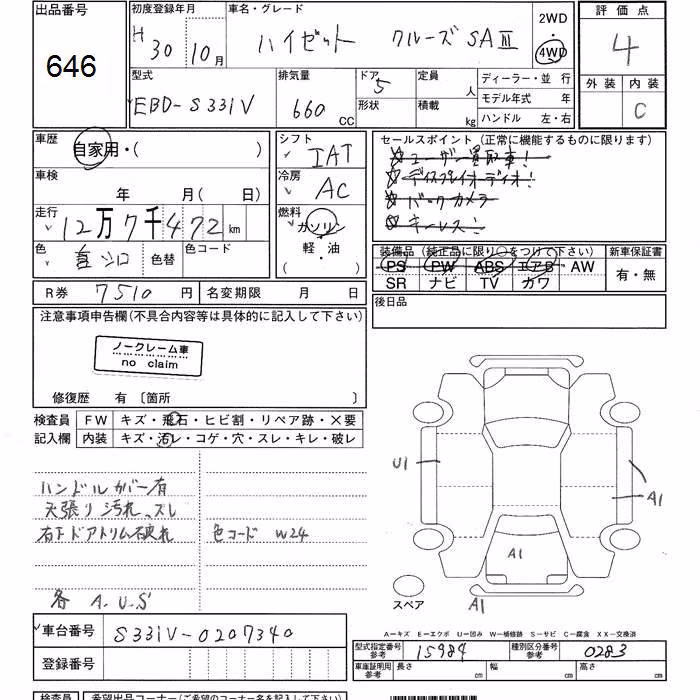 出品番号 初度登録年月 車名・グレード 2WD 評価点
646 H 30 10月 ハイゼット クルーズ SAⅢ 4WD 4
型式 排気量 ドア 5 定員 人 ディーラー・並 行 外装 内装
EBD-S331V 660 CC 形状 積載 kg モデル年式 年 C
ハンドル 左・右
車歴 自家用・( ) シフト IAT セールスポイント (正常に機能するものに限ります)
☆ユーザー買取車!
車検 年 月(日) 冷房 AC ☆ディスプレイオーディオ!
☆バックカメラ
走行 12万7千472km 燃料 ガソリン ☆キーレス!
軽・油
色 シロ 色替 色コード ( )
装備品 (純正品に限り○をつけて下さい) 新車保証書
PS PW ABS エアB AW 有・無
SR ナビ TV カワ
R券 7510 円 名変期限 月 日 後日品
注意事項申告欄(不具合内容等は具体的に記入して下さい)
ノークレーム車
no claim
修復歴 有 〔箇所 〕
検査員 FW キズ・飛石・ヒビ割・リペア跡・×要
記入欄 内装 キズ・汚レ・コゲ・穴・スレ・キレ・破レ
U1
A1
ハンドルカバー有
天張り汚れ、スレ
右下ドアトリム破れ 色コード W24
A1
各 A.U.S
スペア A1
A-キズ E-エクボ U-凹み W-補修跡 S-サビ C-腐食 XX-交換済
車台番号 S331V-0207340
型式指定番号 参考 15984 種別区分番号 参考 0283
登録番号 車庫証明用 参考 長さ 幅 高さ
検査員 希望出品コーナー(ご希望のコーナー名を記入